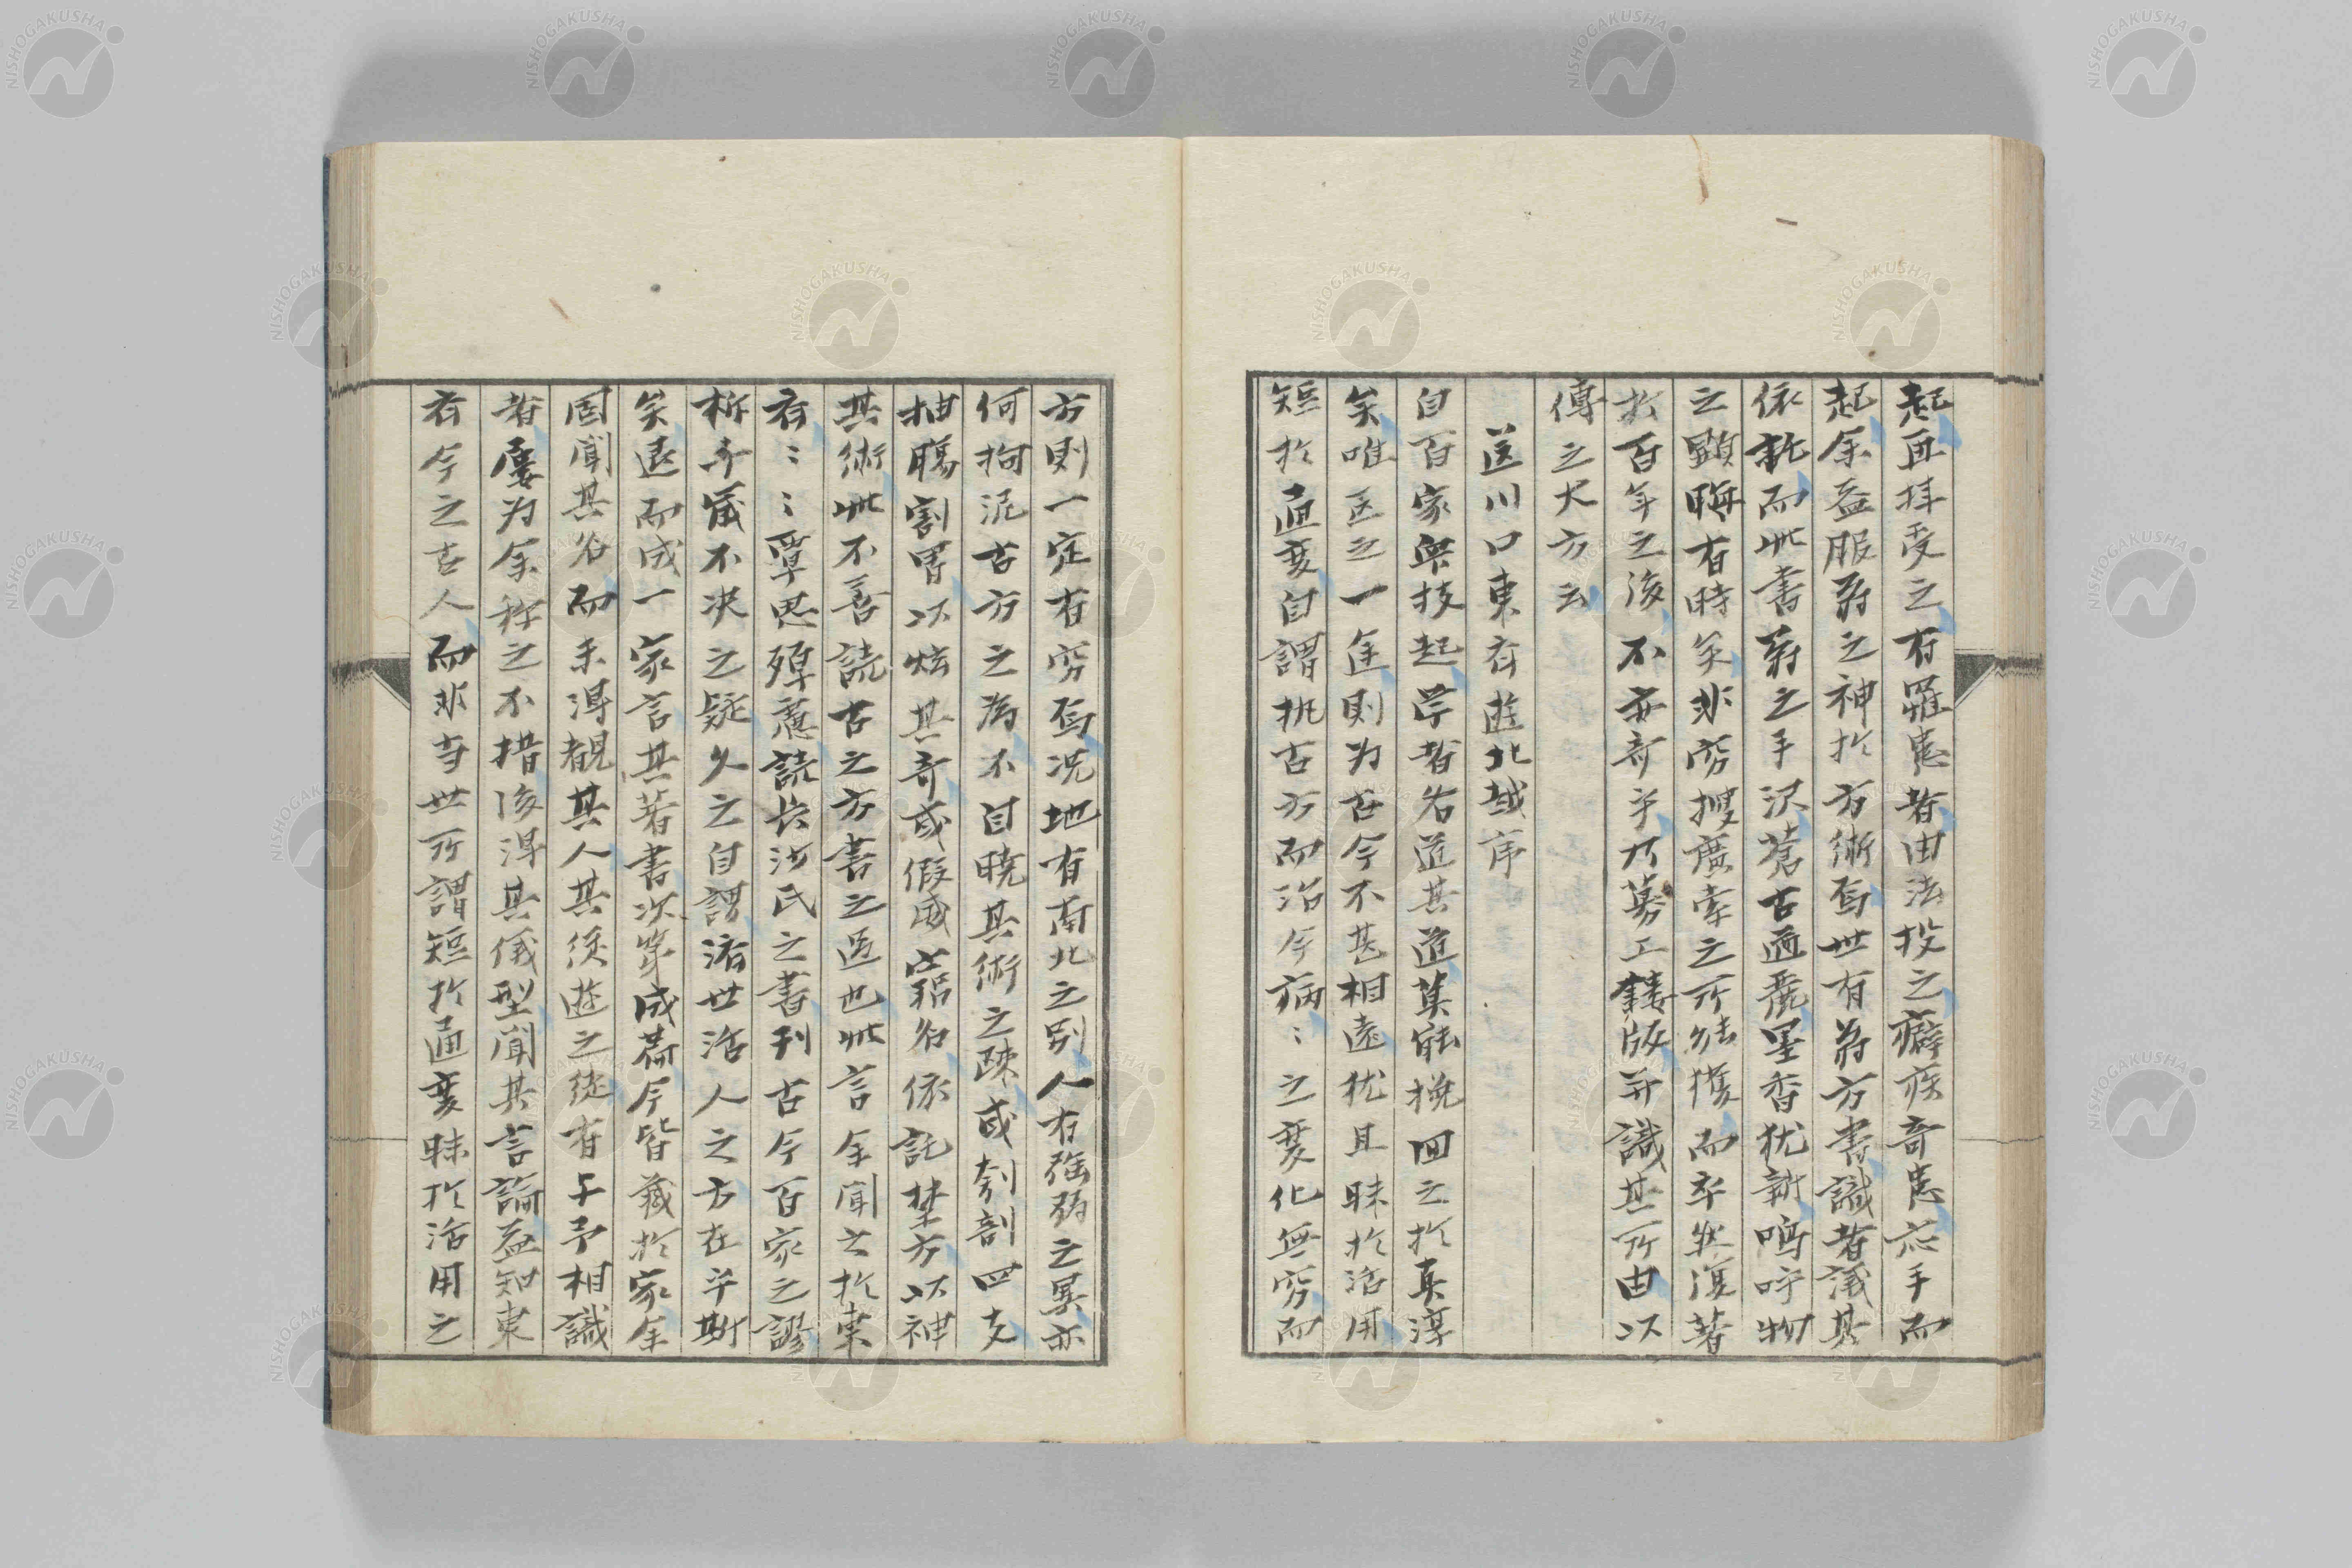 起再拝受之有罹患者由法投之癖疾奇患応手而
起余益服翁之神於方術焉世有翁方書識者議其
依託而此書翁之手沢蒼古遒麗墨香猶新嗚呼物
之顕晦有時矣非窮捜広索之所能獲而卒然復著
於百年之後不亦奇乎乃募工鏤版并識其所由以
傳之大方云
送川口東有遊北越序
自百家衆技起学者各道其道莫能挽回之於真淳
矣唯医之一途則为古今不甚相遠犹且昧於活用
短於通変自謂執古方而治今病〻之変化無窮而
方則一定有窮焉况地有南北之別人有強弱之異亦
何拘泥古方之為不自暁其術之疎或刳剖四支
抽腸割胃以炫其奇或假威竊名依託禁方以神
其術此不善読古之方書之過也此言余聞之於東
有〻〻覃思殫慮読長沙氏之書刊古今百家之謬
析千歳不決之疑久之自謂済世活人之方在乎斯
矣退而成一家言其著書次第成帙今皆蔵於家余
固聞其名而未得覩其人其後遊之徒有与予相識
者屡为余称之不措後得其儀型聞其言論益知東
有今之古人而非当世所謂短於通変昧於活用之
NISHOGAKUSHA